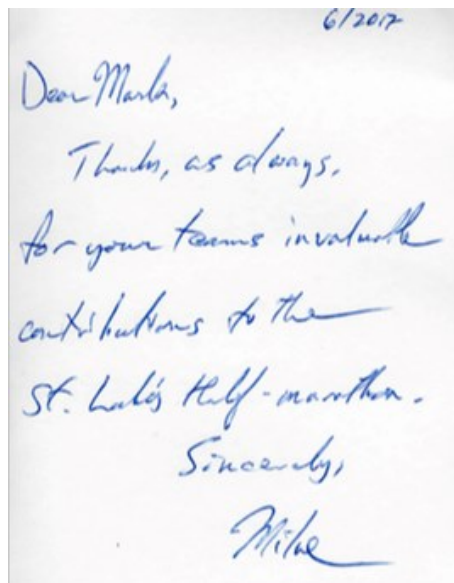 6/2017
Dear Marla,
Thanks, as always,
for your teams invaluable
contributions to the
St. Luke's Half-marathon.
Sincerely,
Mike